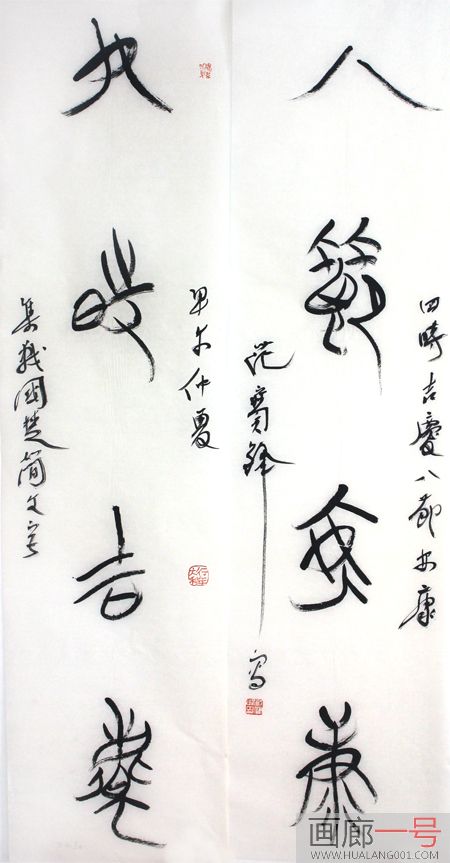 八節安康
四時吉慶八節安康
范 寫
四時吉慶
甲午仲夏
集戰國楚簡文字
画廊一号
WWW.HUALANG001.COM